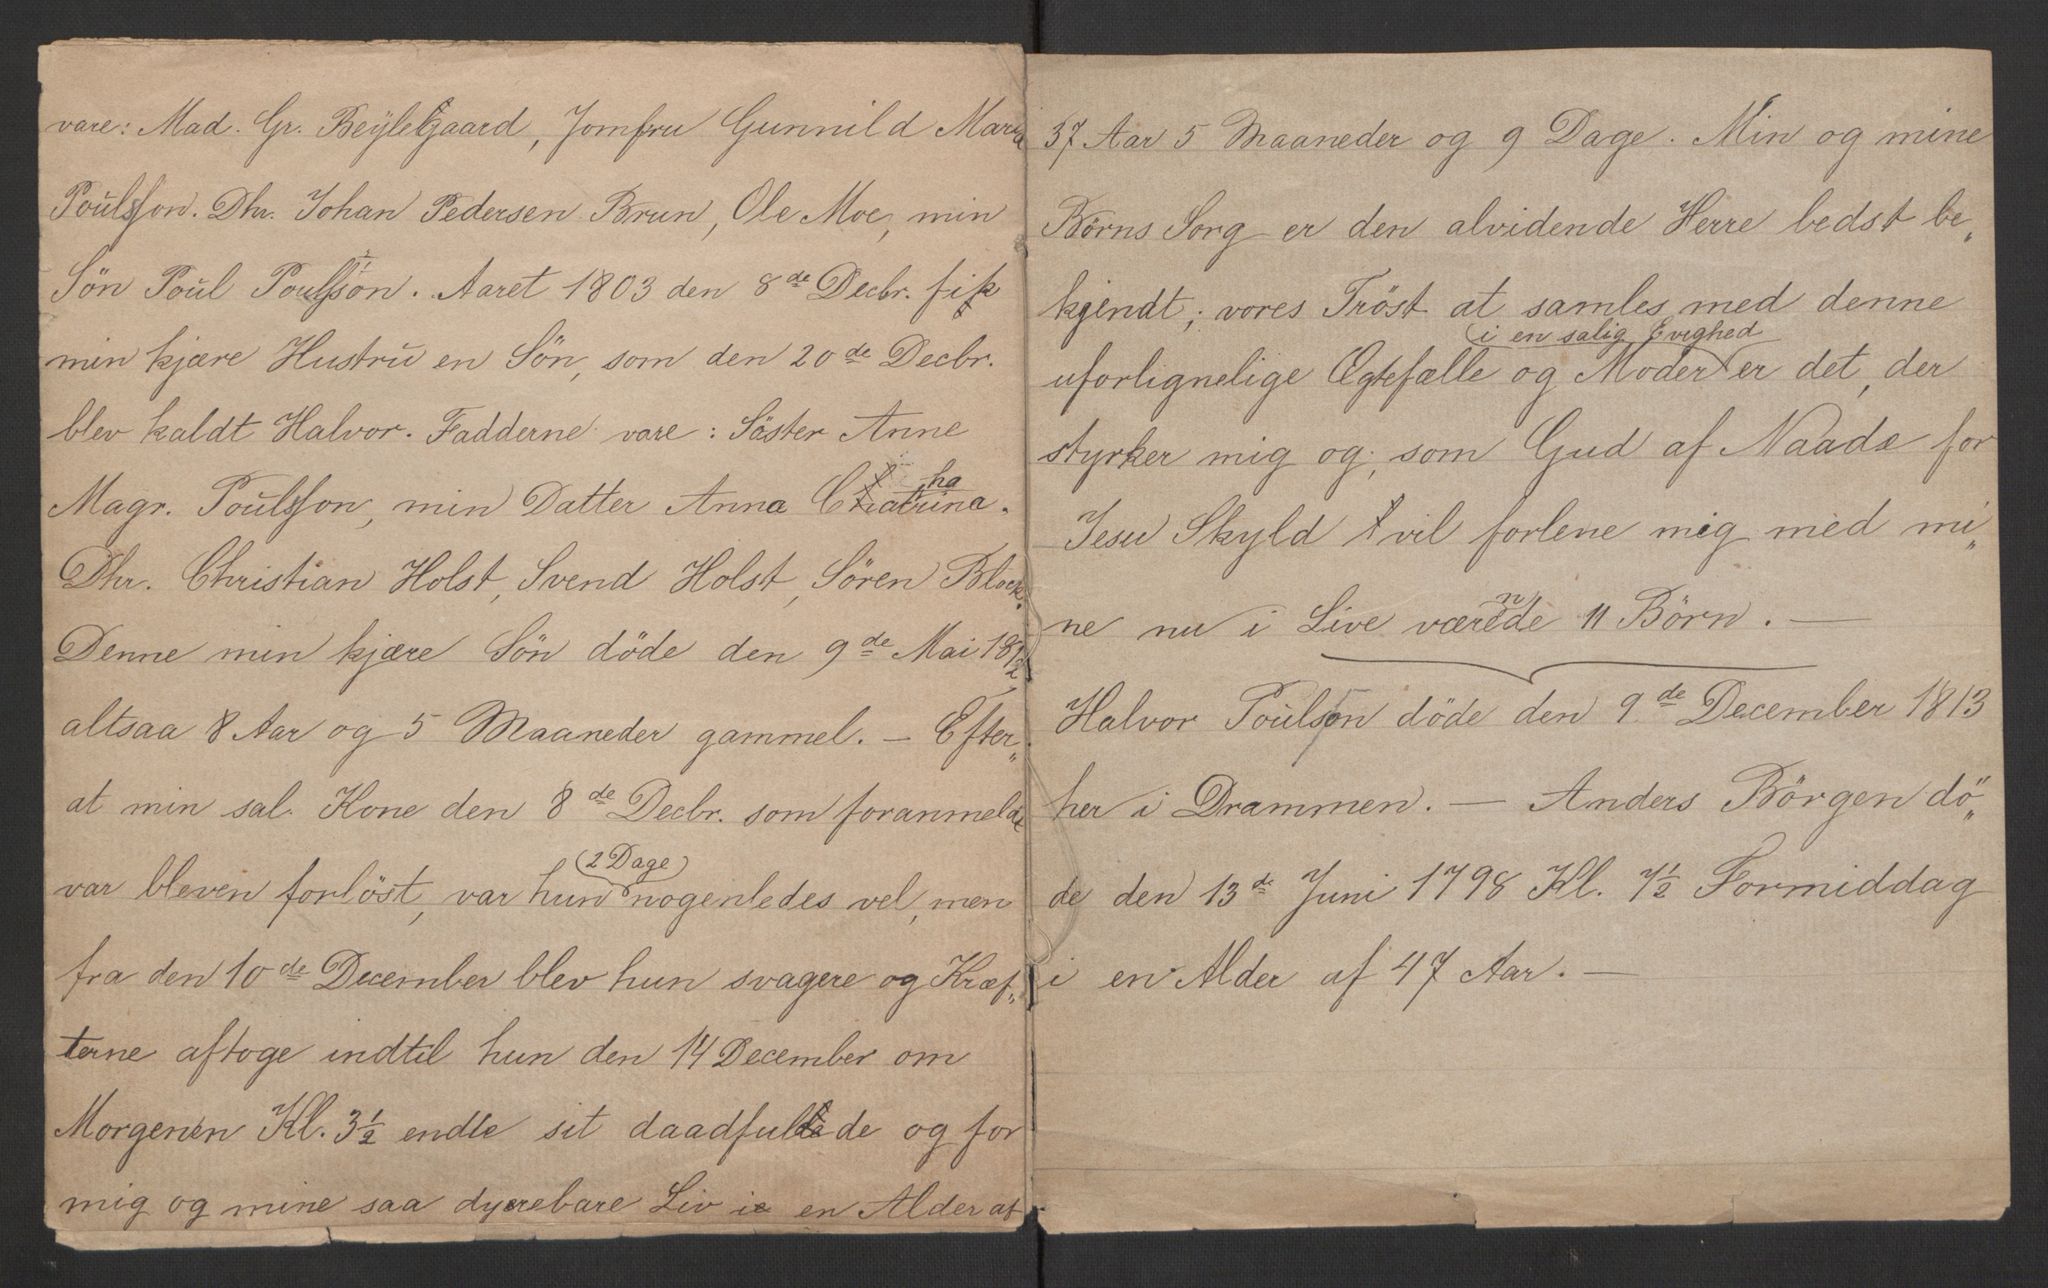 vare: Mad. Gr. Beylegaard, Jomfru Gunnild Maria
Poulsson. Dhr. Johan Pedersen Brun, Ole Moe, min
Søn Poul Poulsson. Aaret 1803 den 8de Decbr. fik
min kjære Hustru en Søn, som den 20de Decbr.
blev kaldt Halvor. Fadderne vare: Søster Anne
Magr. Poulsson, min Datter Anna Chatrina.
Dhr. Christian Holst, Svend Holst, Søren Block.
Denne min kjære Søn døde den 9de Mai 1812,
altsaa 8 Aar og 5 Maaneder gammel. — Efter„
at min sal. Kone den 8de Decbr. som foranmeldt
var bleven forløst, var hun 2 Dage nogenledes vel, men
fra den 10de December blev hun svagere og Kræf„
terne aftoge indtil hun den 14 December om
Morgenen Kl. 3½ endte sit daadfulde og for
mig og mine saa dyrebare Liv i en Alder af
37 Aar 5 Maaneder og 9 Dage. Min og mine
Børns Sorg er den alvidende Herre bedst be„
kjendt; vores Trøst at samles med denne
uforlignelige Ægtefælle og Moder i en salig Evighed er det, der
styrker mig og, som Gud af Naade for
Jesu Skyld vil forlene mig med mi„
ne nu i Liveværende 11 Børn. —
Halvor Poulson døde den 9de December 1813
her i Drammen. — Anders Börgen dö„
de den 13de Juni 1798 Kl. 7½ Formiddag
i en Alder af 47 Aar. —